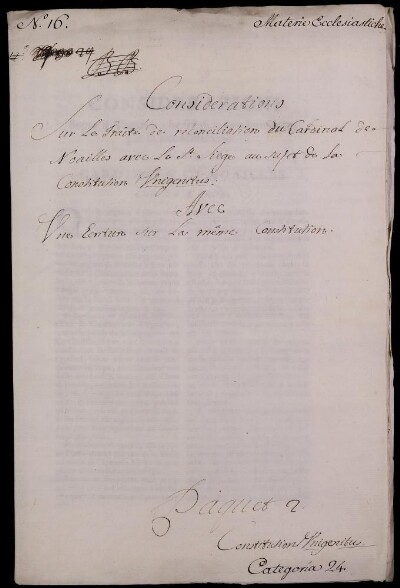 N.º 16.
Materie Ecclesiastiche
Considerations
Sur Le Traité de reconciliation du Cardinal de
Noailles avec Le St. Siege au sujet de La
Constitution Vnigenitus.
Avec
Vne Ecriture Sur La même Constitution.
Paquet 2.
Constitution Vnigenitus
Categoria 24.